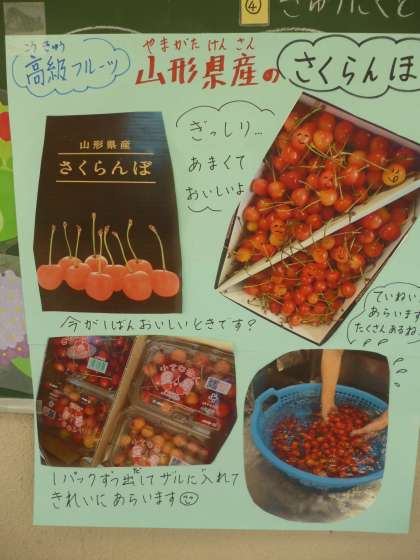 ④
きゅうにくと
こうきゅう
高級フルーツ
やまがたけんさん
山形県産の
さくらんぼ
山形県産
さくらんぼ
ぎっしり…
あまくて
おいしいよ
ていねいに
あらいます
たくさんあるね
今がいちばんおいしいときです?
1パックずつ出してザルに入れて
だ
い
きれいにあらいます